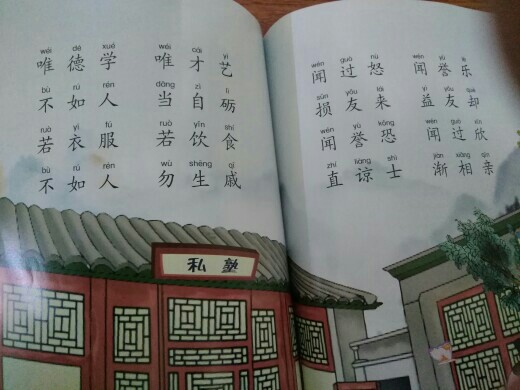 wéi dé xué wéi cái yì
唯德学 唯才艺
bù rú rén dāng zì lì
不如人 当自砺
ruò yī fú ruò yǐn shí
若衣服 若饮食
bù rú rén wù shēng qī
不如人 勿生戚
私塾
wén guò nù wén yù lè
闻过怒 闻誉乐
sǔn yǒu lái yì yǒu què
损友来 益友却
wén yù kǒng wén guò xīn
闻誉恐 闻过欣
zhí liàng shì jiàn xiāng qīn
直谅士 渐相亲